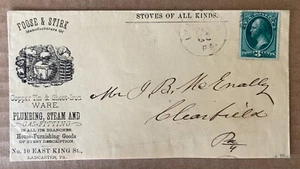 FOOSE & STIRK
Manufacturers of
STOVES OF ALL KINDS.
Copper Tin & Sheet-Iron
WARE.
PLUMBING, STEAM AND
GAS-FITTING
IN ALL ITS BRANCHES.
House-Furnishing Goods
OF EVERY DESCRIPTION.
No. 10 EAST KING St.,
LANCASTER, PA.
Mr J B. McEnally
Clearfield
Pa